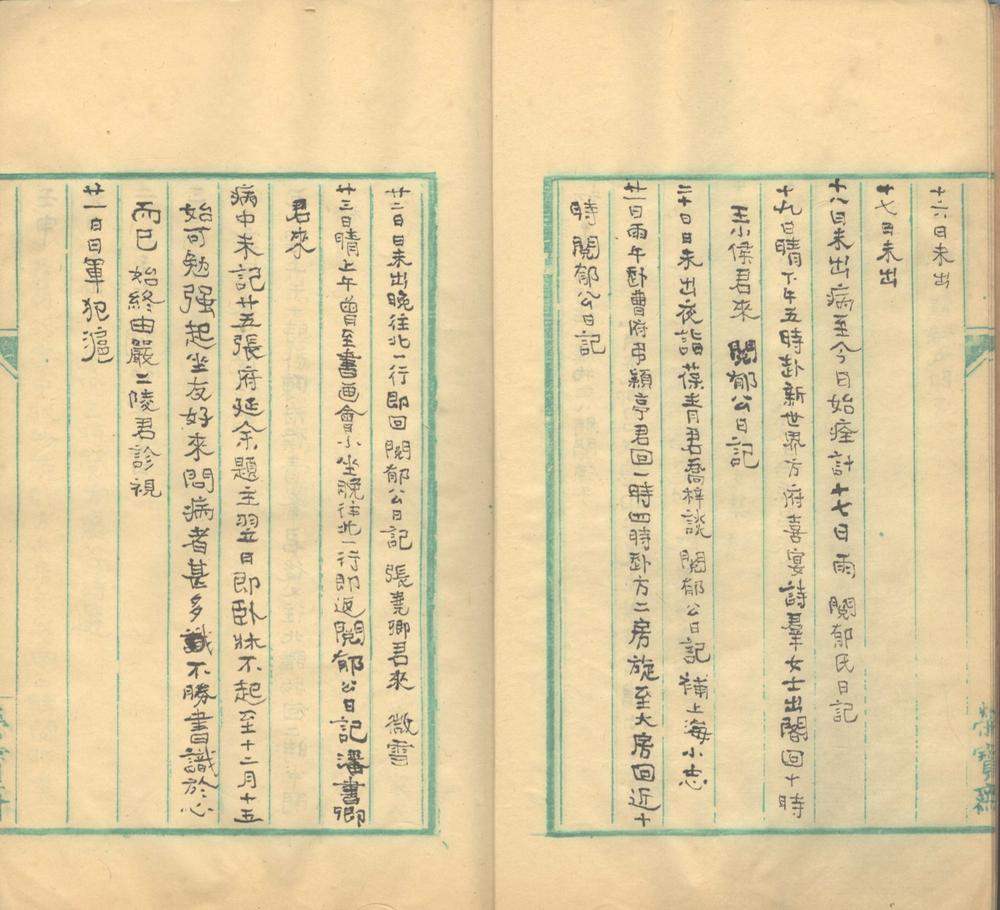 十六日未出
十七日未出
十八日未出病至今日始痊計十七日雨 閱郁氏日記
十九日晴下午五時赴新世界方府喜宴詩羣女士出閣回十時
王小侯君來 閱郁公日記
二十日日未出夜詣葆青君喬梓談 閱郁公日記補上海小志
廿一日雨午赴曹府弔穎亭君回一時四時赴方二房旋至大房回近十
時 閱郁公日記
廿二日日未出晚往北一行即回 閱郁公日記 張堯卿君來 微雪
廿三日晴上午曾至書画會小坐晚往北一行即返閱郁公日記潘書卿
君來
病中未記廿五張府延余題主翌日即臥牀不起至十二月十五
始可勉强起坐友好來問病者甚多識不勝書識於心
而已 始終由嚴二陵君診視
廿一日日軍犯滬
榮寶齋